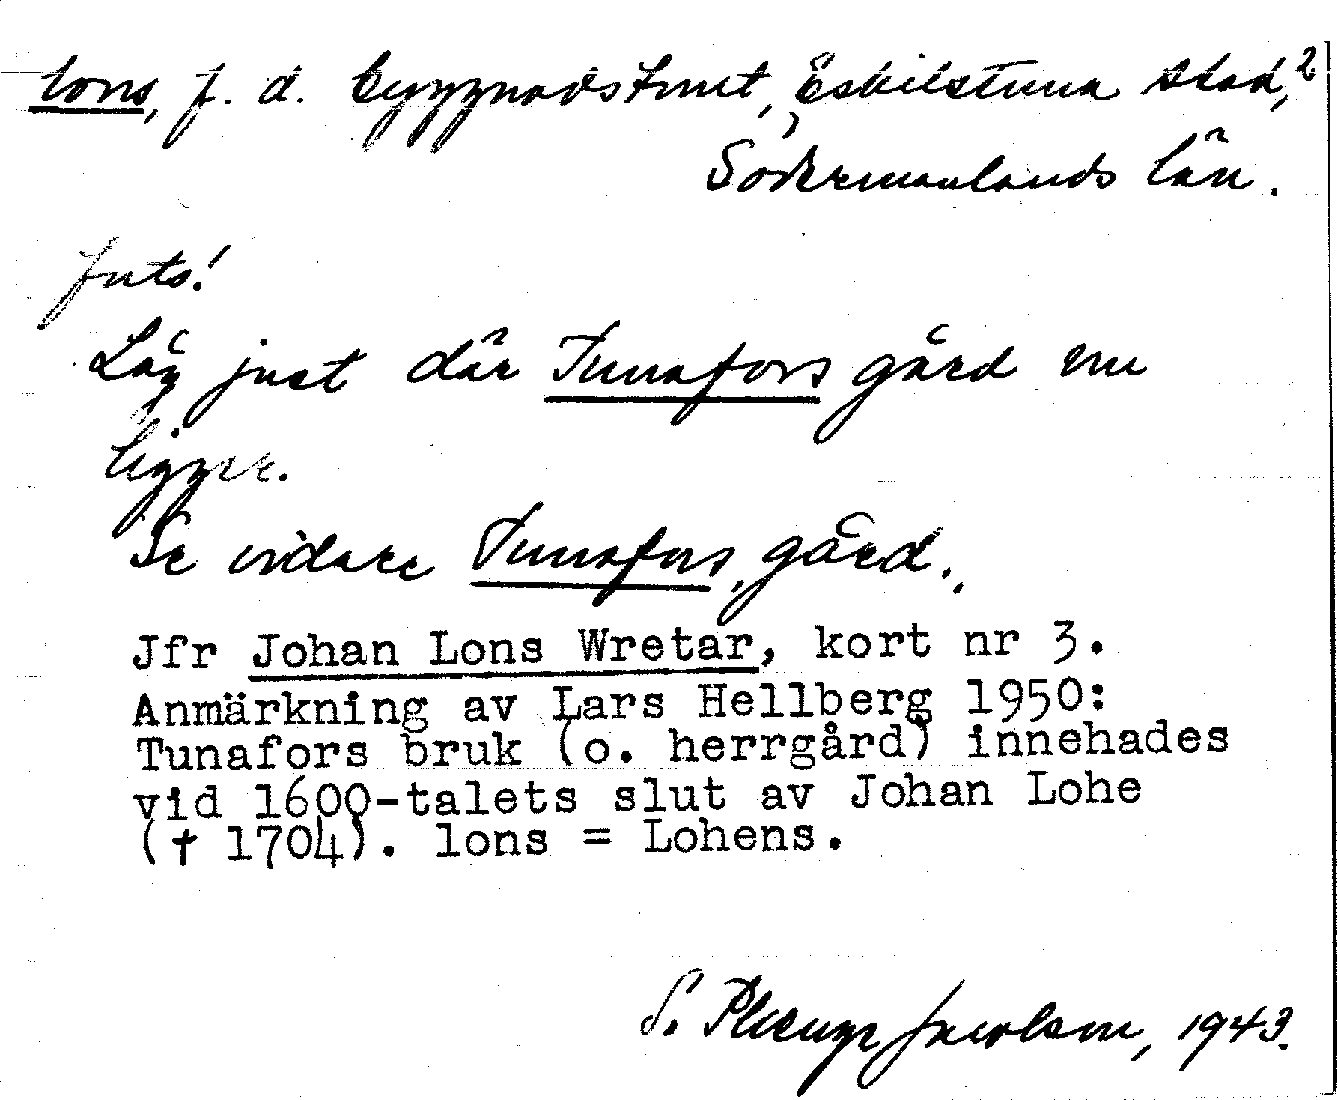 lons, f. d. byggnadstomt, Eskilstuna stad, 2
Södermanlands län.
forts!
Låg just där Tunafors gård nu
ligger.
Se vidare Tunafors, gård.
Jfr Johan Lons Wretar, kort nr 3.
Anmärkning av Lars Hellberg 1950:
Tunafors bruk (o. herrgård) innehades
vid 1600-talets slut av Johan Lohe
(† 1704). lons = Lohens.
S. Jacobson, 1943.